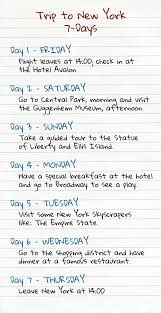 Trip to New York
7-Days
Day 1 - FRIDAY
Flight leaves at 14:00, check in at
the Hotel Avalon
Day 2 - SATURDAY
Go to Central Park, morning and visit
the Guggenheim Museum, afternoon.
Day 3 - SUNDAY
Take a guided tour to the Statue
of Liberty and Ellis Island.
Day 4 - MONDAY
Have a special breakfast at the hotel
and go to Broadway to see a play.
Day 5 - TUESDAY
Visit some New York Skyscrapers
like: The Empire State.
Day 6 - WEDNESDAY
Go to the shopping district and have
dinner at a famous restaurant.
Day 7 - THURSDAY
Leave New York at 14:00